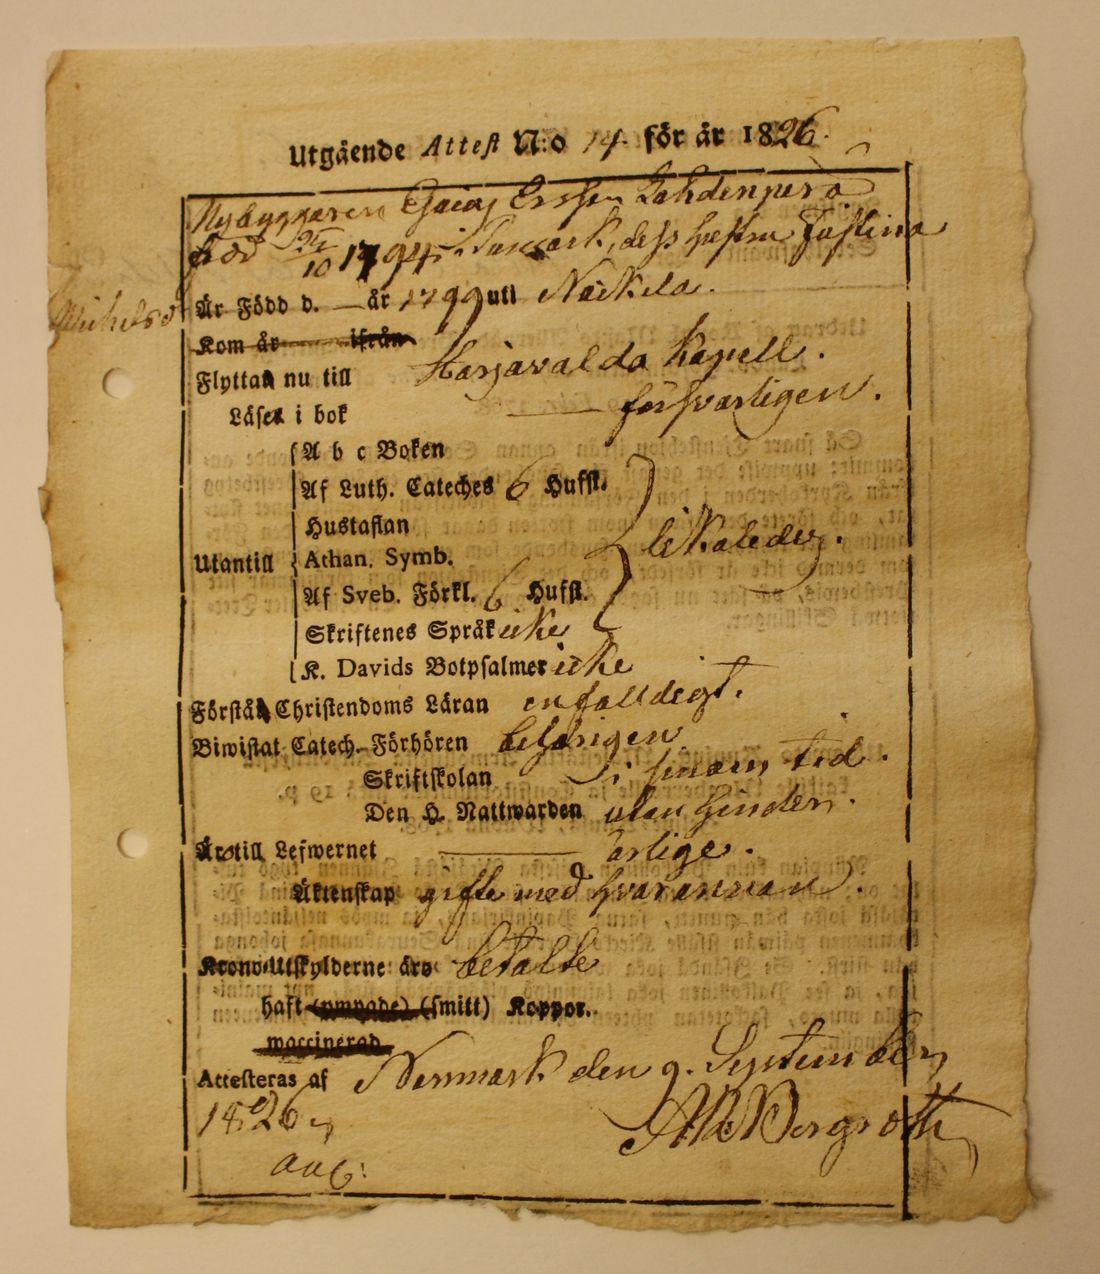 Utgående Attest N:o 14. för år 1826.
Nybyggaren Esaias Ersson Lahdenperä
född 25/10 1794 i Normark, dess hustru Justina
Är Född d. — år 1799 uti Näckila.
Kom år ifrån
Flyttar nu till Harjavalda Kapell.
Läser i bok — försvarligen.
A b c Boken
Af Luth. Cateches 6 Hufst.
Hustaflan
Utantill Athan. Symb. likaledes.
Af Sveb. Förkl. 6 Hufst.
Skriftenes Språk icke
K. Davids Botpsalmer icke
Förstå Christendoms Läran enfalldigt.
Biwistat Catech. Förhören behörigen
Skriftskolan i sinom tid.
Den H. Nattwarden utan hinder.
Äro till Lefwernet — ärlige.
Äktenskap gifte med hvarannan.
Krono-Utskylderne äro betalte
haft (ympade) (smitt) Koppor.
waccinerad
Attesteras af Normark den 9. September
1826
A. W. Bergroth